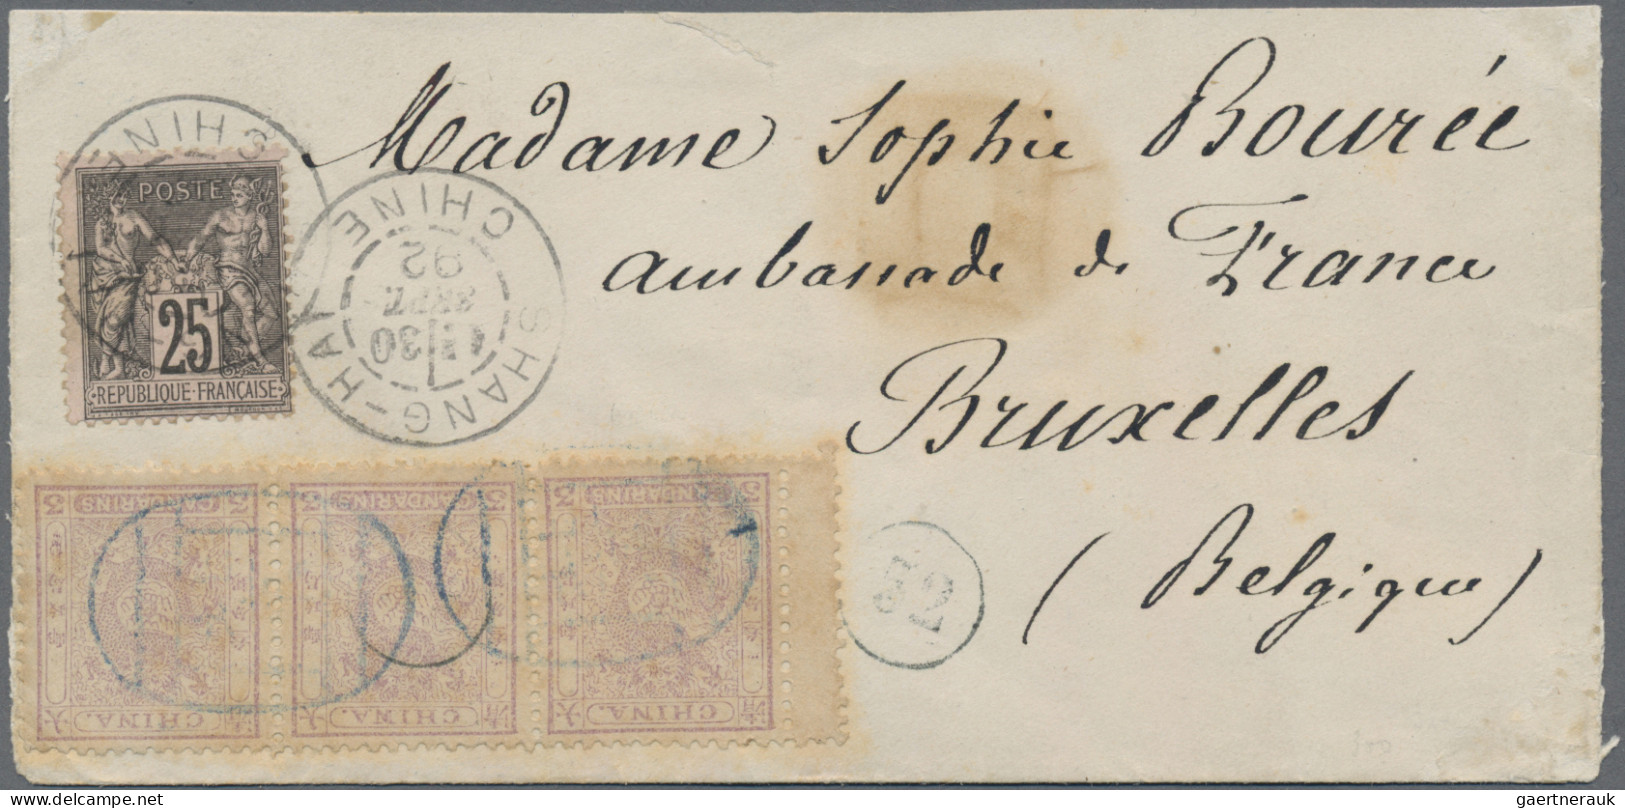 Madame Sophie Bourée
ambassade de France
Bruxelles
(Belgique)
CHINE
POSTE
25
REPUBLIQUE FRANÇAISE
SHANG-HAI
CHINE
30
SEPT.
92
3 CANDARINS 3
清 CHINA. 大
3 CANDARINS 3
清 CHINA. 大
3 CANDARINS 3
清 CHINA. 大
52
gaertnerauk